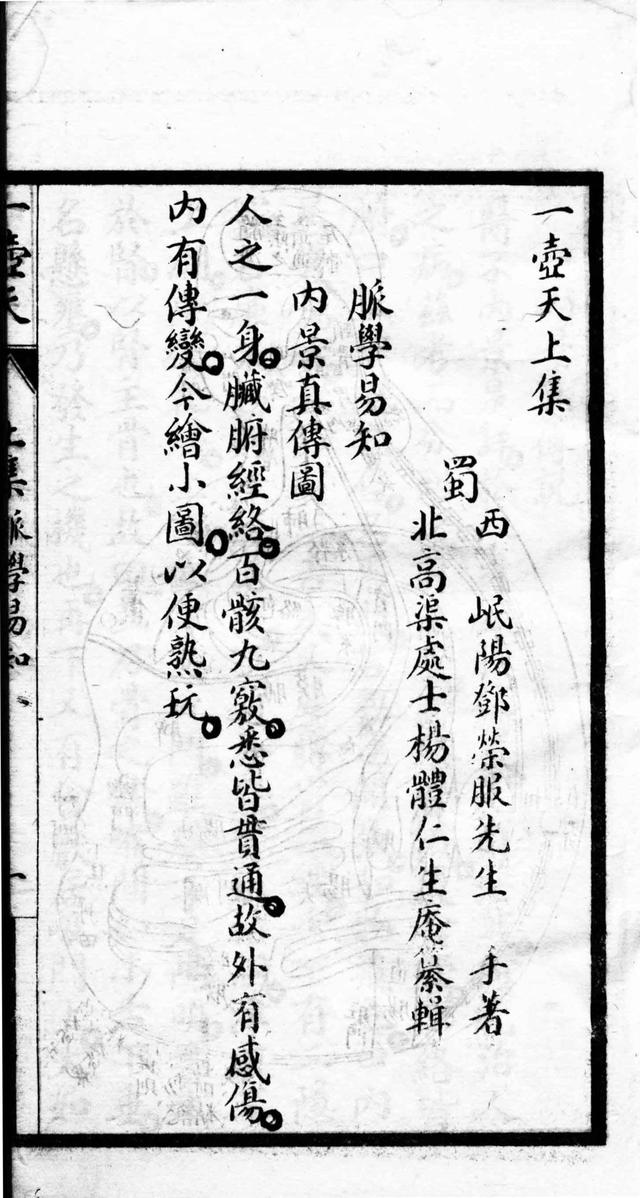 一壺天上集
蜀
西 岷陽鄧榮服先生 手著
北高渠處士楊體仁生庵纂輯
脈學易知
內景真傳圖
人之一身。臟腑經絡。百骸九竅。悉皆貫通。故外有感傷。
內有傳變。今繪小圖。以便熟玩。
一壺天 上集脈學易知 一